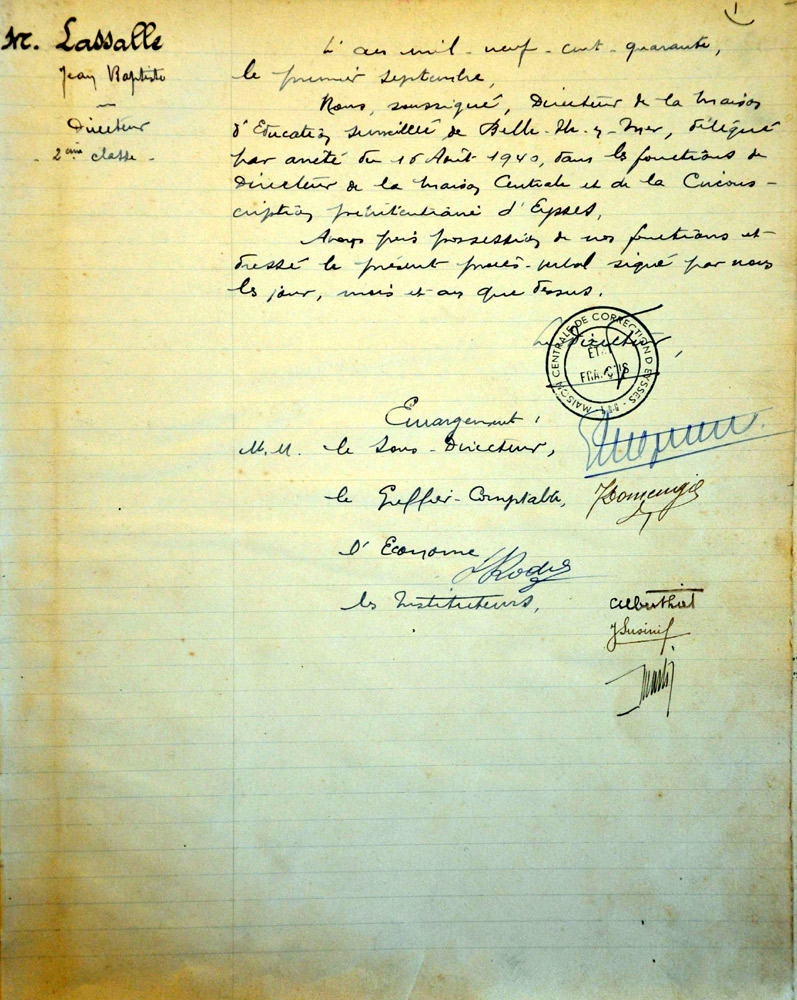 M. Lassalle
Jean Baptiste
Directeur
- 2ème classe -
L'an mil-neuf-cent-quarante,
le premier septembre,
Nous, soussigné, Directeur de la Maison
d'Education surveillée de Belle-Ile-en-Mer, délégué
par arrêté du 16 Août 1940, dans les fonctions de
Directeur de la Maison Centrale et de la Circons-
cription pénitentiaire d'Eysses,
Avons pris possession de nos fonctions et
dressé le présent procès-verbal signé par nous
les jour, mois et an que dessus.
Le Directeur,
MAISON CENTRALE DE CORRECTION D'EYSSES
ETAT
FRANÇAIS
Emargement,
M.M. le Sous-Directeur,
le Greffier-Comptable,
l'Econome,
les Instituteurs,